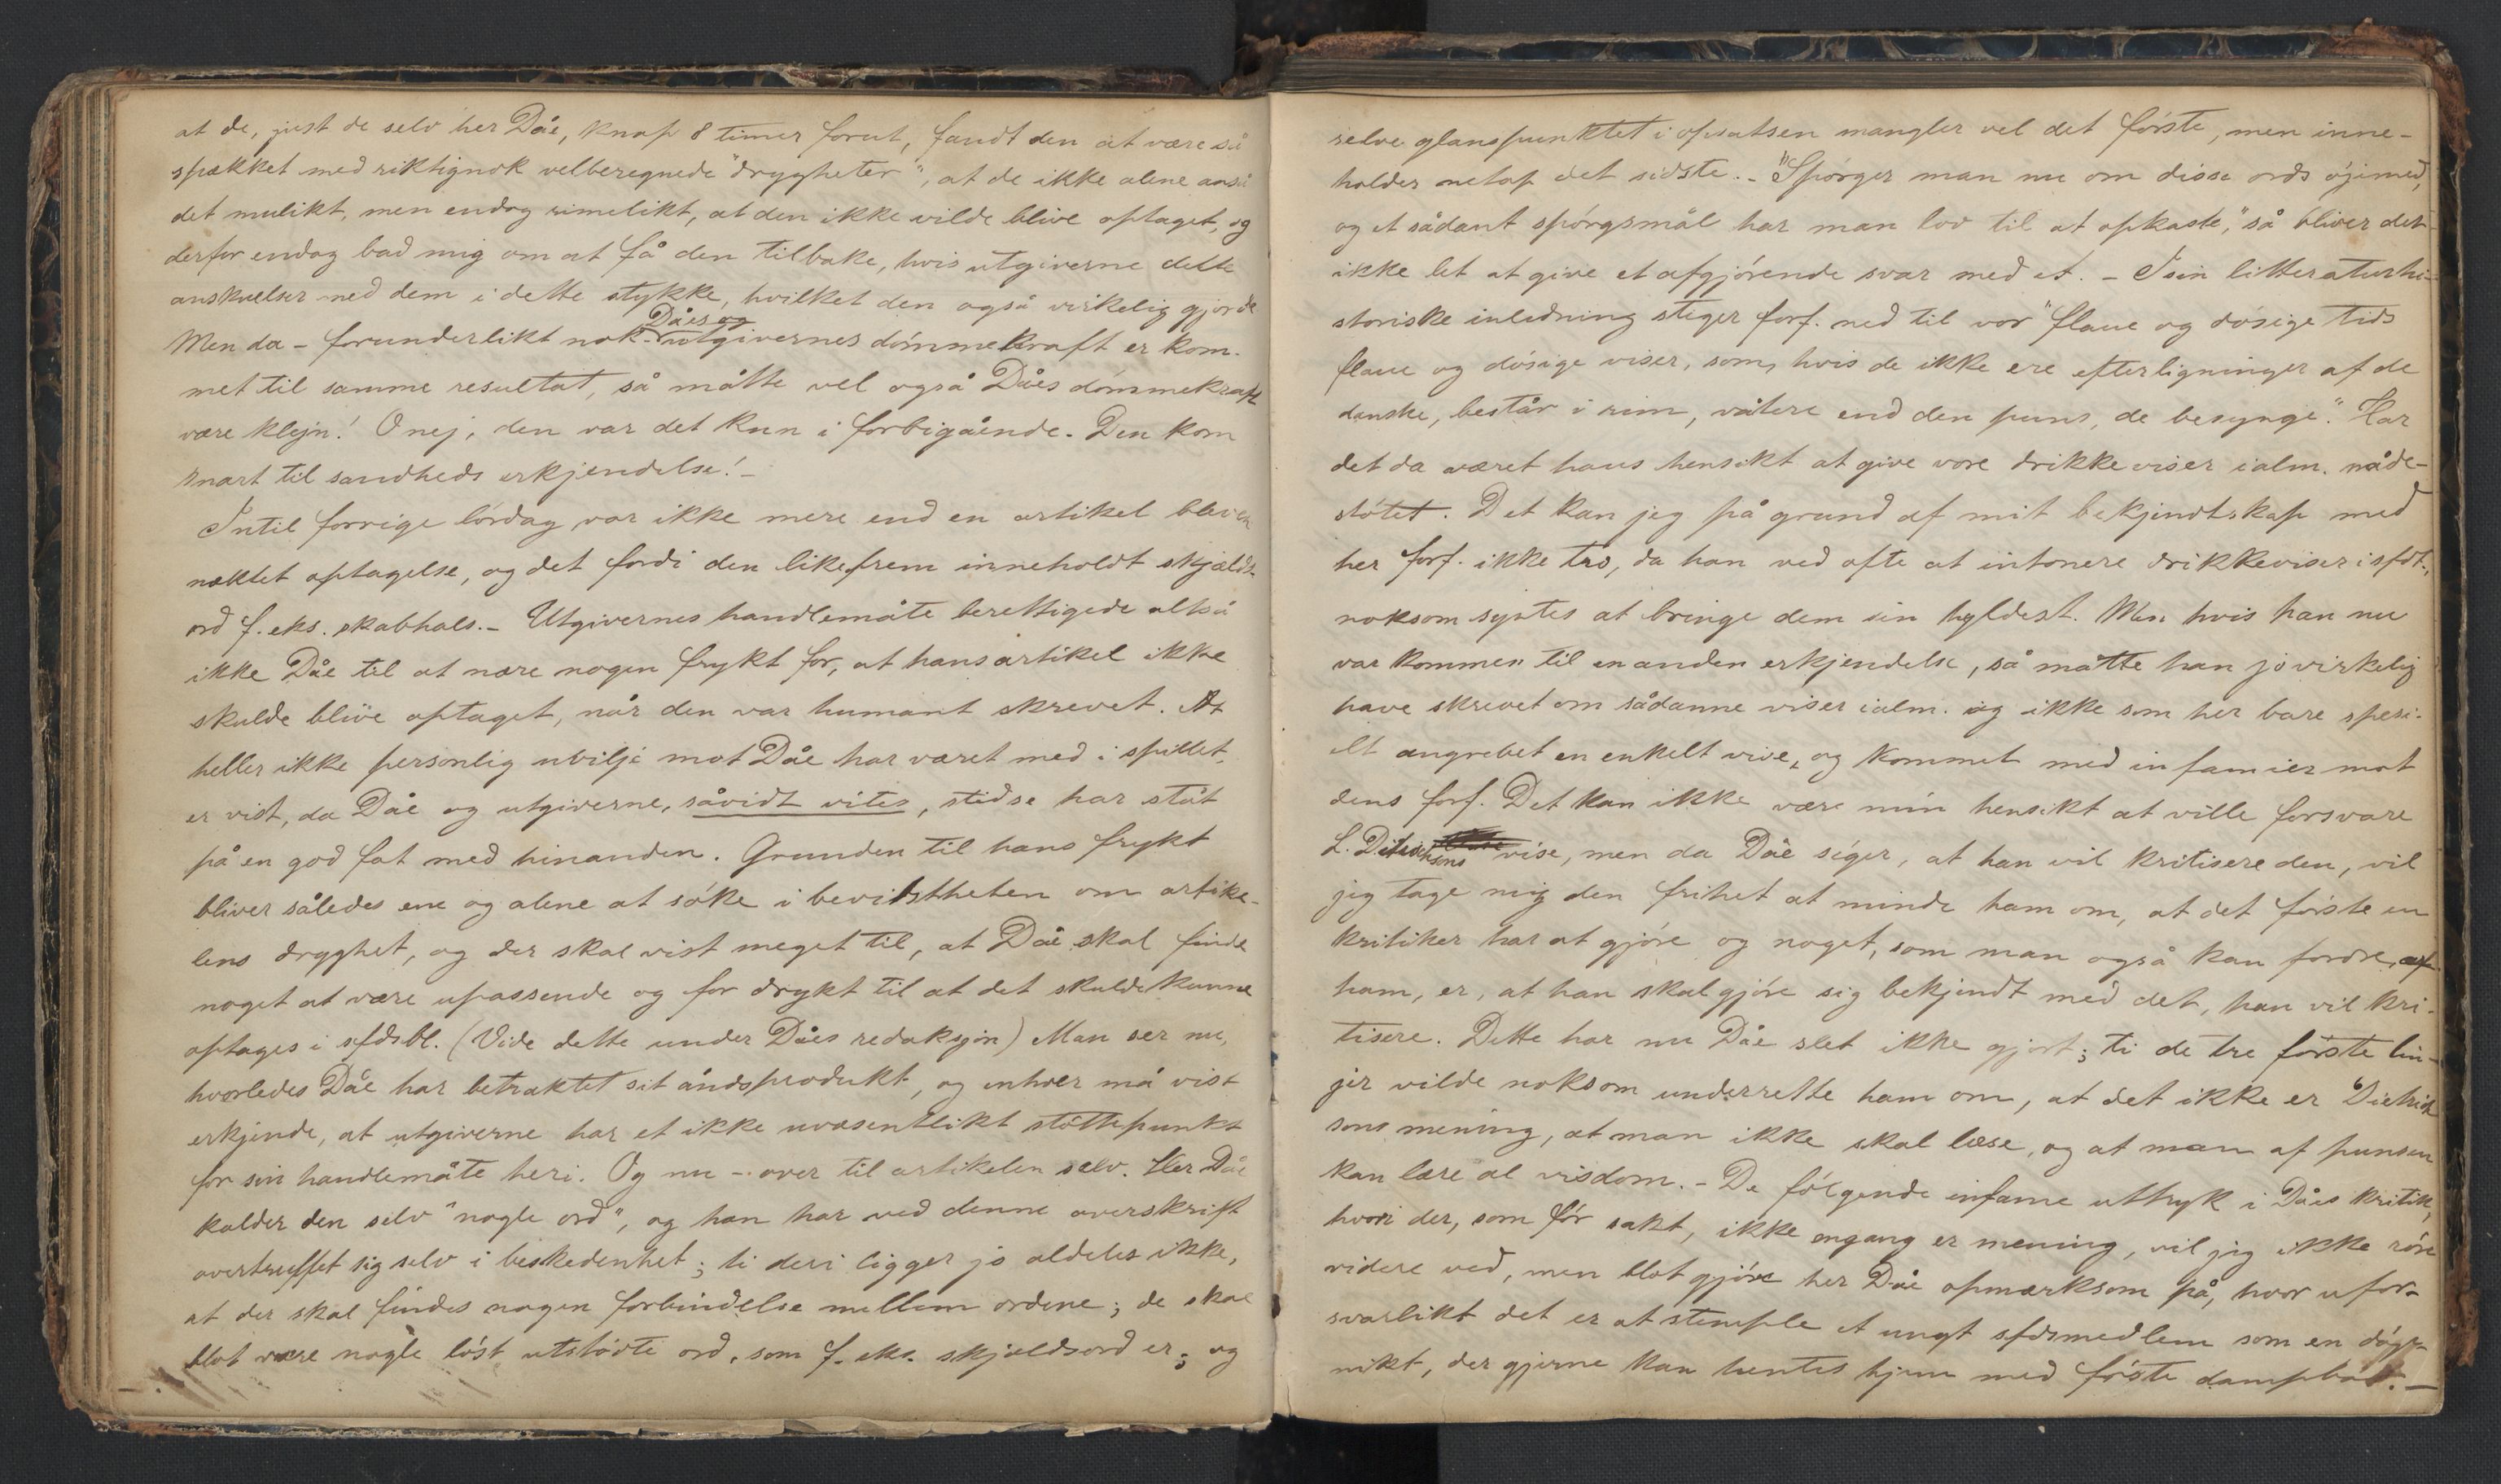 at de, just de selv her Dåe, knap 8 timer forut, fandt den at være så
spækket med riktignok velberegnede "drygheter", at de ikke alene anså
det mulikt, men endog rimelikt, at den ikke vilde blive optaget, og
derfor endog bad mig om at få den tilbake, hvis utgiverne delte
anskuelser med dem i dette stykke, hvilket den også virkelig gjorde
Dåes og
Men da – forunderlikt nok – utgivernes dömmekraft er kom-
met til samme resultat, så måtte vel også Dåes dömmekraft
være klejn! O nej, den var det kun i forbigående. Den kom
snart til sandheds erkjendelse! –
Intil forrige lördag var ikke mere end en artikel bleven
nektet optagelse, og det fordi den likefrem inneholdt skjælds-
ord f. eks. skabhals. – Utgivernes handlemåte berettigede altså
ikke Dåe til at nære nogen frykt for, at hans artikel ikke
skulde blive optaget, når den var humant skrevet. At
heller ikke personlig uvilje mot Dåe har været med i spillet,
er vist, da Dåe og utgiverne, såvidt vites, stidse har ståt
på en god fot med hinanden. Grunden til hans frykt
bliver således ene og alene at söke i bevisstheten om artike-
lens dryghet, og der skal vist meget til, at Dåe skal finde
noget at være upassende og for drykt til at det skulde kunne
optages i sfdsbl. (Vide dette under Dåes redaksjon) Man ser nu,
hvorledes Dåe har betraktet sit åndsprodukt, og enhver må vist
erkjende, at utgiverne har et ikke uvæsentlikt stöttepunkt
for sin handlemåte heri. Og nu – over til artikelen selv. Her Dåe
kalder den selv "nogle ord", og han har ved denne overskrift
overtruffet sig selv i beskedenhet; ti deri ligger jo aldeles ikke,
at der skal findes nogen forbindelse mellem ordene; de skal
blot være nogle löst utstödte ord, som f. eks. skjældsord er; og
selve glanspunktet i opsatsen mangler vel det förste, men inne-
holder netop det sidste. – "Spörger man nu om disse ords öjemed,
og et sådant spörgsmål har man lov til at opkaste," så bliver det
ikke let at give et afgjörende svar med et. – I sin litteraturhi-
storiske inledning stiger forf. ned til vor "flaue og dösige tids
flaue og dösige viser, som, hvis de ikke ere efterligninger af de
danske, består i rim, våtere end den puns, de besynge." Har
det da været hans hensikt at give vore drikkeviser i alm. nåde-
stötet. Det kan jeg på grund af mit bekjendtskap med
her forf. ikke tro, da han ved ofte at intonere drikkeviser i sfdt.,
noksom syntes at bringe dem sin hyldest. Men hvis han nu
var kommen til en anden erkjendelse, så måtte han jo virkelig
have skrevet om sådanne viser i alm. og ikke som her bare spesi-
elt angrebet en enkelt vise, og kommet med infamier mot
dens forf. Det kan ikke være min hensikt at ville forsvare
L. Dietrichsons vise, men da Dåe siger, at han vil kritisere den, vil
jeg tage mig den frihet at minde ham om, at det förste en
kritiker har at gjöre og noget, som man også kan fordre, af
ham, er, at han skal gjöre sig bekjendt med det, han vil kri-
tisere. Dette har nu Dåe slet ikke gjort; ti de tre förste lin-
jer vilde noksom underrette ham om, at det ikke er Dietrich-
sons mening, at man ikke skal læse, og at man af punsen
kan lære al visdom. – De fölgende infame uttryk i Dåes kritik,
hvori der, som för sakt, ikke engang er mening, vil jeg ikke röre
videre ved, men blot gjöre her Dåe opmærksom på, hvor ufor-
svarlikt det er at stemple et ungt sfdsmedlem som en dög-
nikt, der gjerne kan hentes hjem med förste dampbåt. –